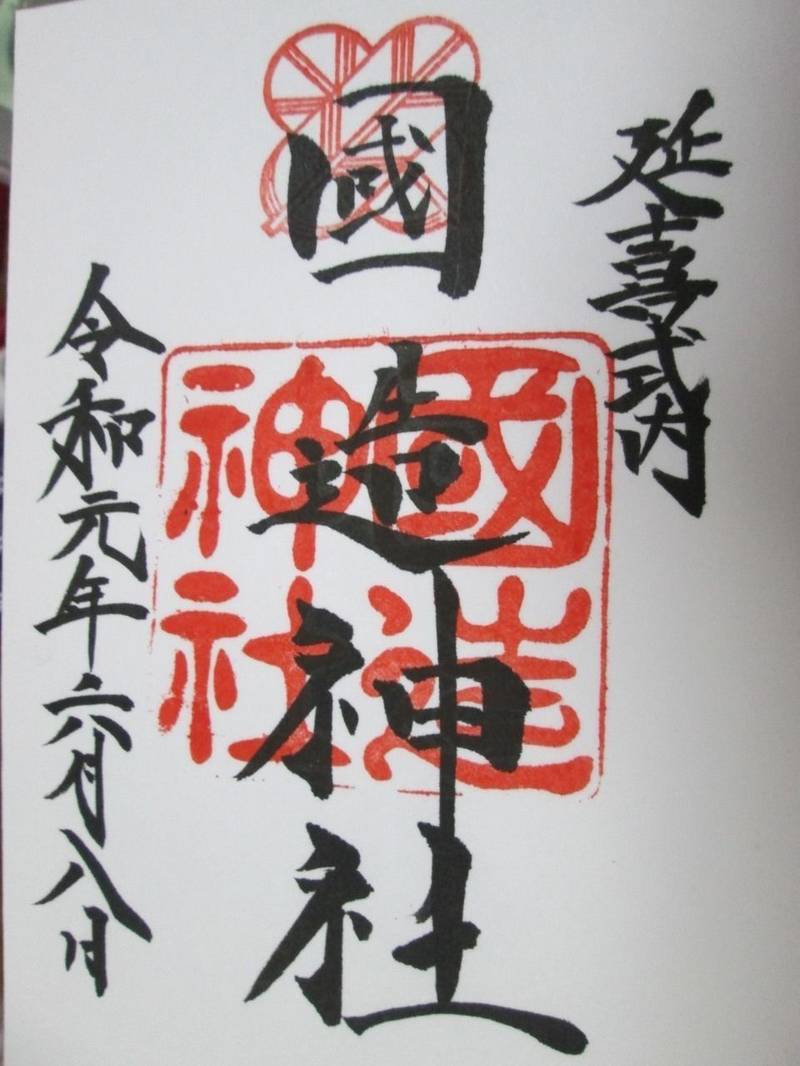 延喜式内
國造神社
國造
神社
令和元年六月八日